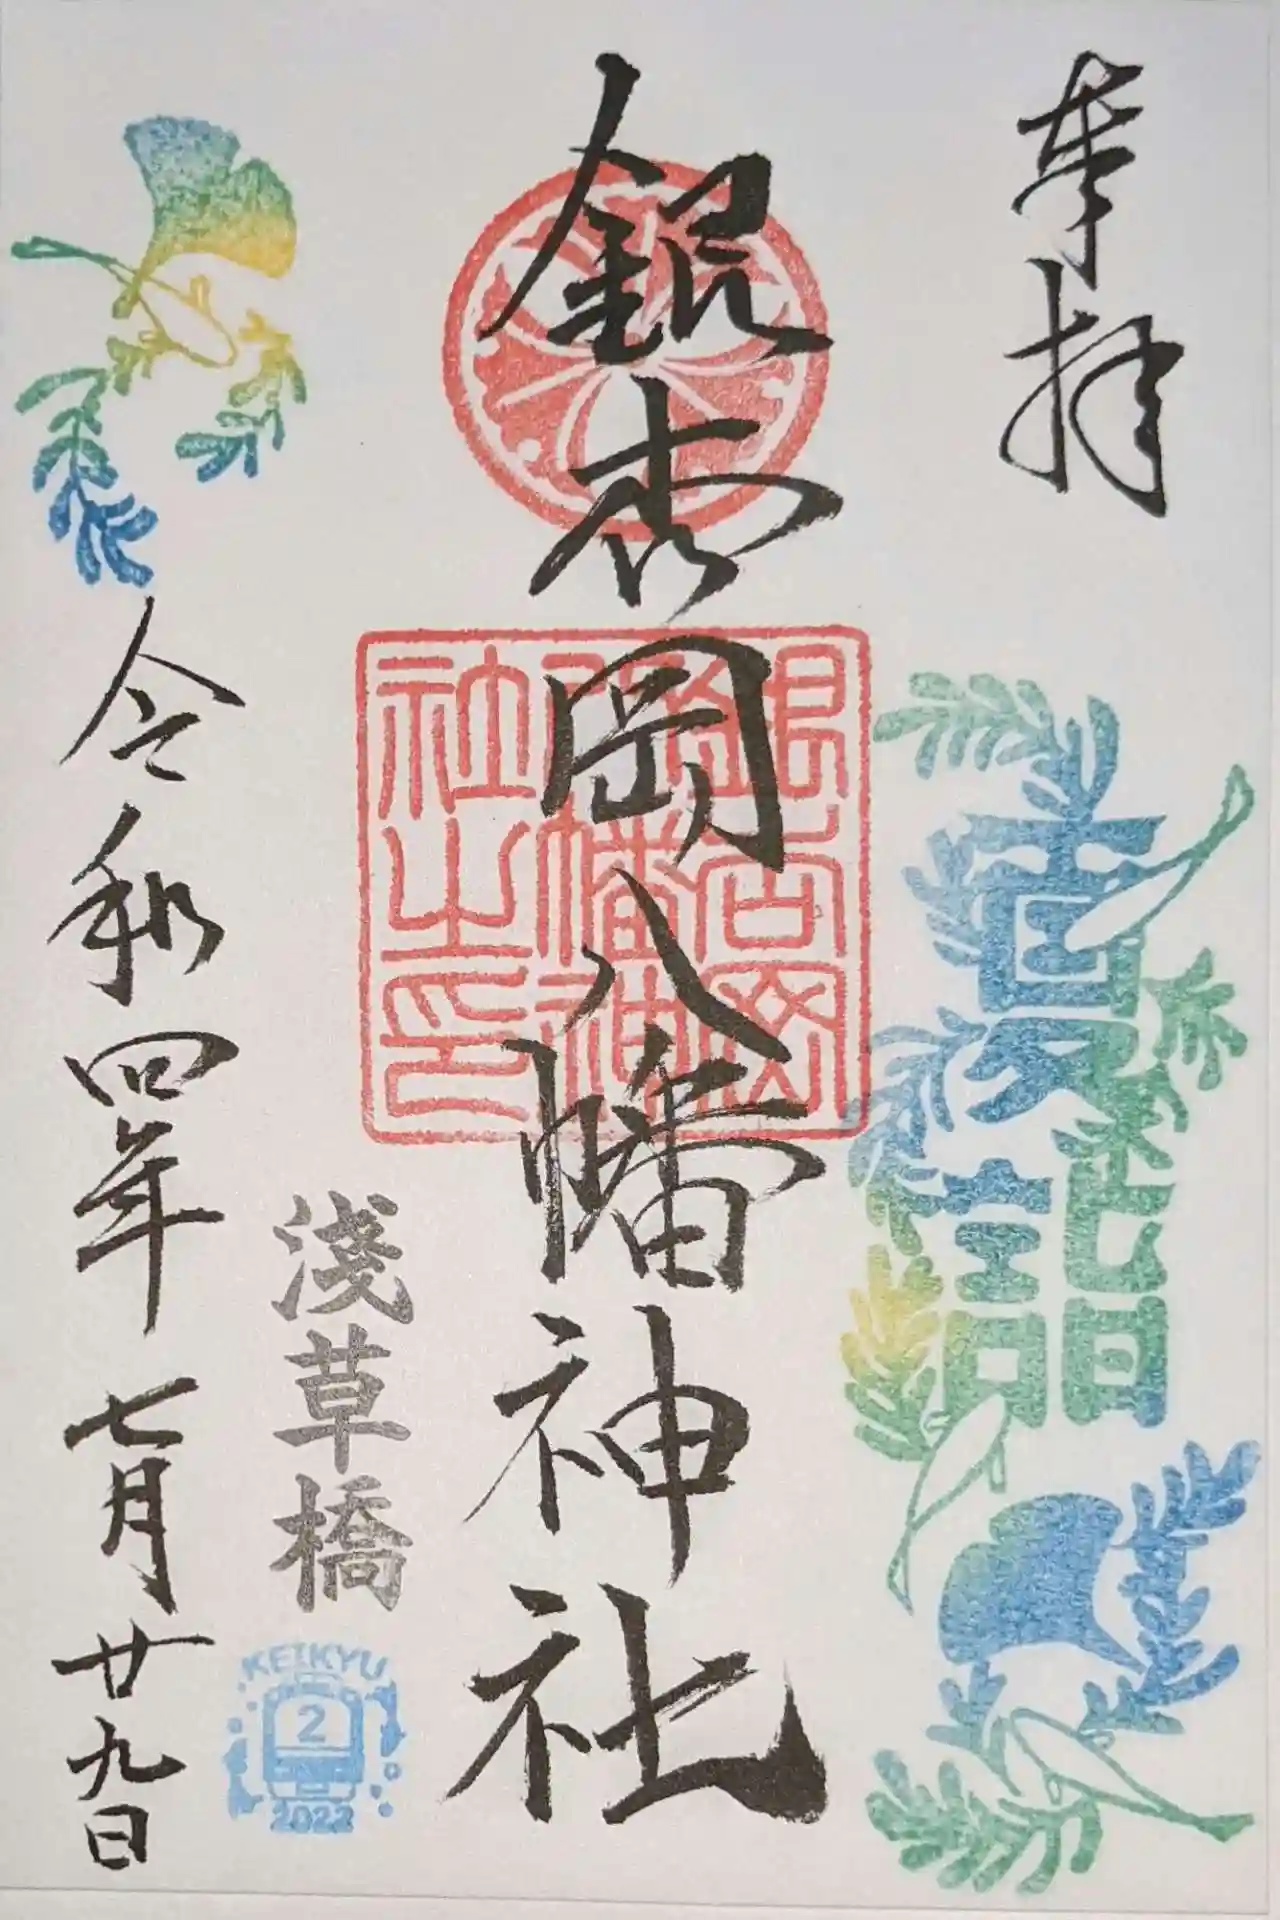 奉拝
夏詣
銀杏岡八幡神社
銀杏岡
八幡神
社之印
淺草橋
KEIKYU
2
2022
令和四年七月廿九日